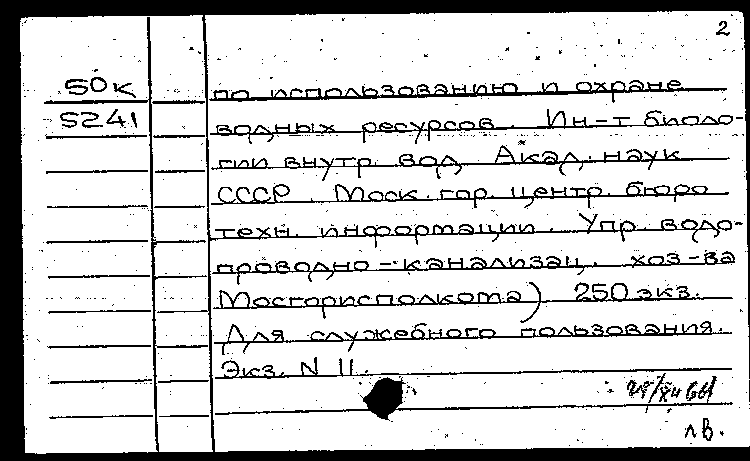 2
50К по использованию и охране
5241 водных ресурсов. Ин-т биоло-
гии внутр. вод Акад. наук
СССР. Моск. гор. центр. бюро
техн. информации. Упр. водо-
проводно-канализац. хоз-ва
Мосгорисполкома) 250 экз.
Для служебного пользования.
Экз. N 11.
лв.